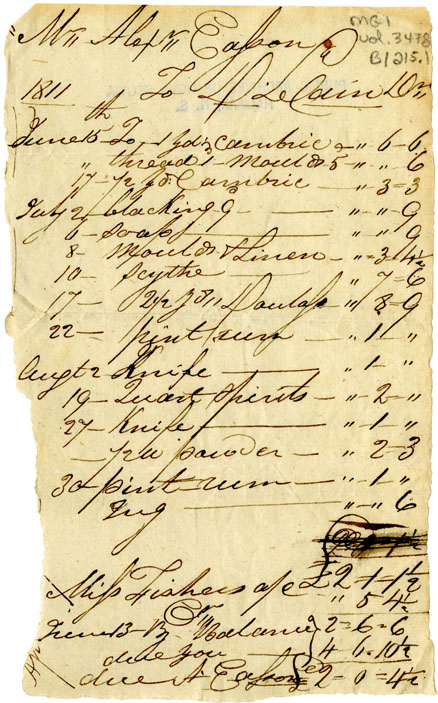 MG1
vol. 3478
B/215.1
Mr Alexr Easson
1811 To D LeCain Dr
June 15th To 1 yd Cambric " 6-6
" thread 1- Moulds 5 " " 6
17- 1/2 yd Cambric - " 3=3
July 2 blacking 9 - " " 9
6- soap - " " 9
8- Moulds & Linen - " =3=4½
10- Scythe - " 7=6
17- 2½ yds Doulas " 8=9
22- pint rum - " 1- "
Augt 2 Knife - " 1- "
19- Quart Spirits - " 2= "
27- Knife - " 1- "
powder - " 2-3
30 pint rum - " 1- "
Jug - " " 6
Miss Fishers a/c £2-1=1½
" 5 4½
Cr 2=6=6
June 13- By Balance
due you 4 6=10½
due A Easson £2=0=4½